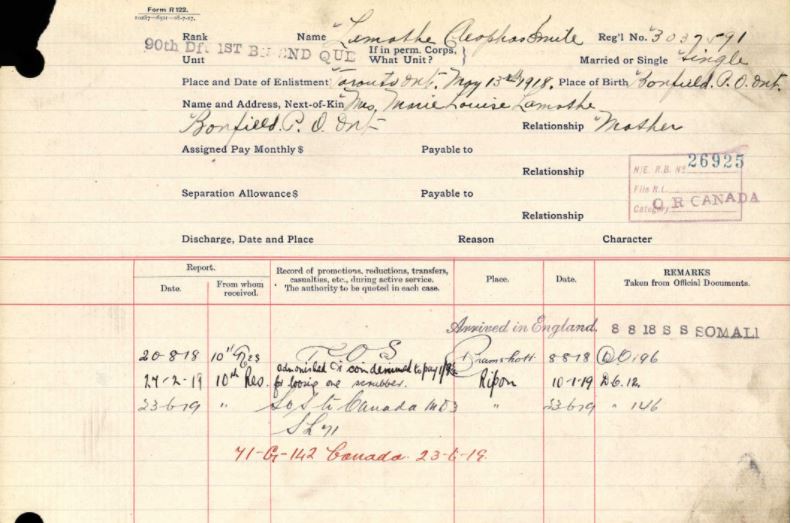 Form R 122.
Rank Name Lamothe Cleophas Smite Reg'l No. 3037591
90th Dft 1ST B ND QUE
Unit If in perm. Corps, What Unit? Married or Single Single
Place and Date of Enlistment Toronto Ont. May 13th 1918. Place of Birth Bonfield. P.O. Ont.
Name and Address, Next-of-Kin Mrs. Marie Louise Lamothe
Bonfield. P.O. Ont Relationship Mother
Assigned Pay Monthly $ Payable to
Relationship
N/E. R.B. No. 26925
File R.L.
Category O R CANADA
Separation Allowance $ Payable to
Relationship
Discharge, Date and Place Reason Character
Report. Record of promotions, reductions, transfers, casualties, etc., during active service. The authority to be quoted in each case. Place. Date. REMARKS Taken from Official Documents.
Date. From whom received.
Arrived in England. 8 8 18 S S SOMALI
20-8-18 10th Res T O S Bramshott 8-8-18 D.O. 196
27-2-19 10th Res. admonished & condemned to pay for losing one scrubber. Ripon 10-1-19 D.O. 12
23-6-19 " S.O.S. to Canada M D 3 " 23-6-19 " 146
S L 71
71-G-142 Canada. 23-6-19.